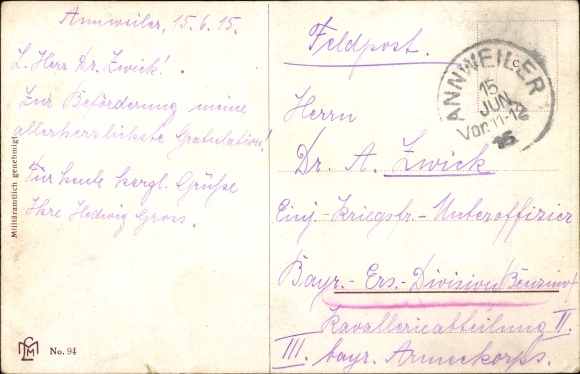 Annweiler, 15.6.15.
L. Herr Dr. Zwick!
Zur Beförderung meine
allerherzlichste Gratulation!
Für heute herzl. Grüße
Ihre Hedwig Gross.
Militäramtlich genehmigt
No. 94
Feldpost.
ANNWEILER
15
JUN
Vor. 11-12
15
Herrn
Dr. A. Zwick
Einj.-Kriegsfr.-Unteroffizier
Bayr.-Ers.-Division
Kavallerieabteilung II
III. bayr. Armeekorps.